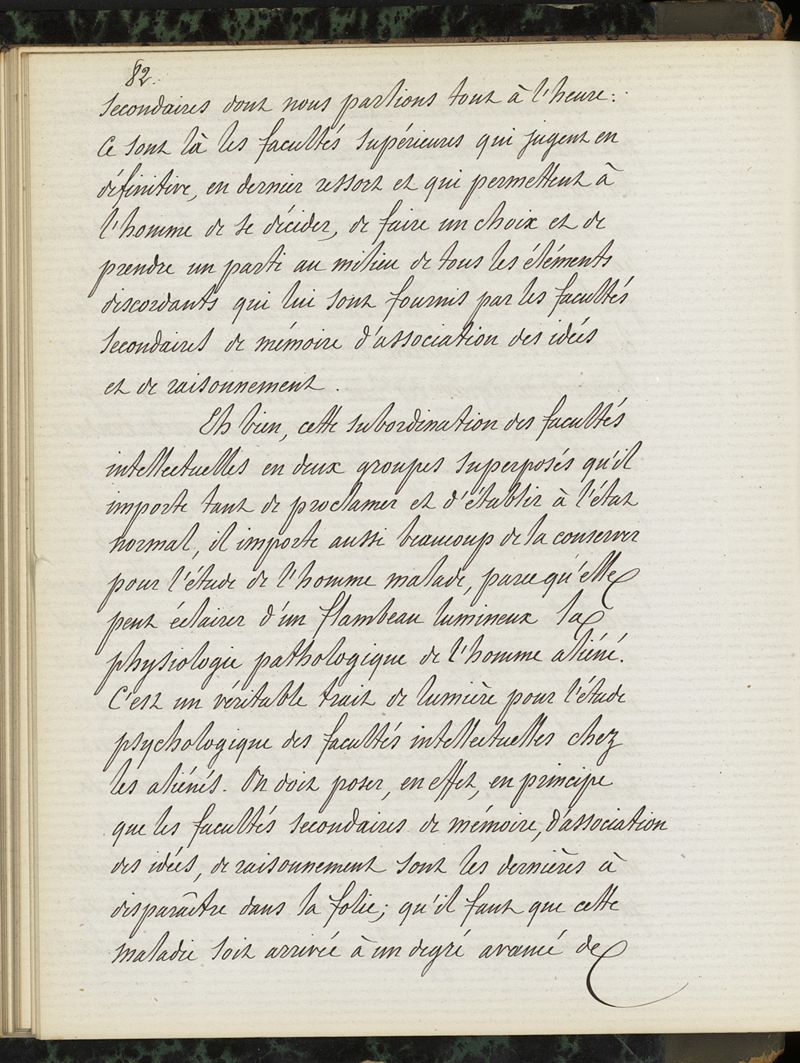 82.
secondaires dont nous parlions tout à l'heure:
Ce sont là les facultés supérieures qui jugent en
définitive, en dernier ressort et qui permettent à
l'homme de se décider, de faire un choix et de
prendre un parti au milieu de tous les éléments
discordants qui lui sont fournis par les facultés
secondaires de mémoire d'association des idées
et de raisonnement.
Eh bien, cette subordination des facultés
intellectuelles en deux groupes superposés qu'il
importe tant de proclamer et d'établir à l'état
normal, il importe aussi beaucoup de la conserver
pour l'étude de l'homme malade, parce qu'elle
peut éclairer d'un flambeau lumineux la
physiologie pathologique de l'homme aliéné.
C'est un véritable trait de lumière pour l'étude
psychologique des facultés intellectuelles chez
les aliénés. On doit poser, en effet, en principe
que les facultés secondaires de mémoire, d'association
des idées, de raisonnement sont les dernières à
disparaître dans la folie; qu'il faut que cette
maladie soit arrivée à un degré avancé de